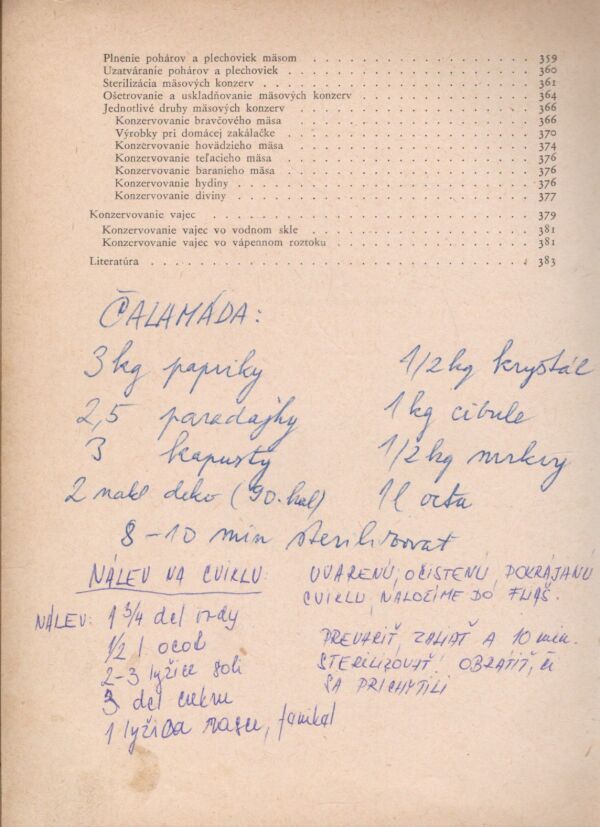 Plnenie pohárov a plechoviek mäsom . . . 359
Uzatváranie pohárov a plechoviek . . . 360
Sterilizácia mäsových konzerv . . . 361
Ošetrovanie a uskladňovanie mäsových konzerv . . . 364
Jednotlivé druhy mäsových konzerv . . . 366
Konzervovanie bravčového mäsa . . . 366
Výrobky pri domácej zakáľačke . . . 370
Konzervovanie hovädzieho mäsa . . . 374
Konzervovanie teľacieho mäsa . . . 376
Konzervovanie baranieho mäsa . . . 376
Konzervovanie hydiny . . . 376
Konzervovanie diviny . . . 377
Konzervovanie vajec . . . 379
Konzervovanie vajec vo vodnom skle . . . 381
Konzervovanie vajec vo vápennom roztoku . . . 381
Literatúra . . . 383
ČALAMÁDA:
3 kg papriky 1/2 kg krystál
2,5 paradajky 1 kg cibule
3 kapusty 1/2 kg mrkvy
2 deko (90. hal) 1 l octa
8-10 min sterilizovat
NÁLEV NA CVIKLU: UVARENÚ, OČISTENÚ, POKRÁJANÚ
CVIKLU, NALOŽÍME DO FLIAŠ.
NÁLEV: 1 3/4 del vody
1/2 l ocot PREVARIŤ, ZALIAŤ A 10 min.
2-3 lyžice soli STERILIZOVAŤ. OBRÁTIŤ, ČI
3 del cukru SA PRICHYTILI
1 lyžica rasce, fenikel